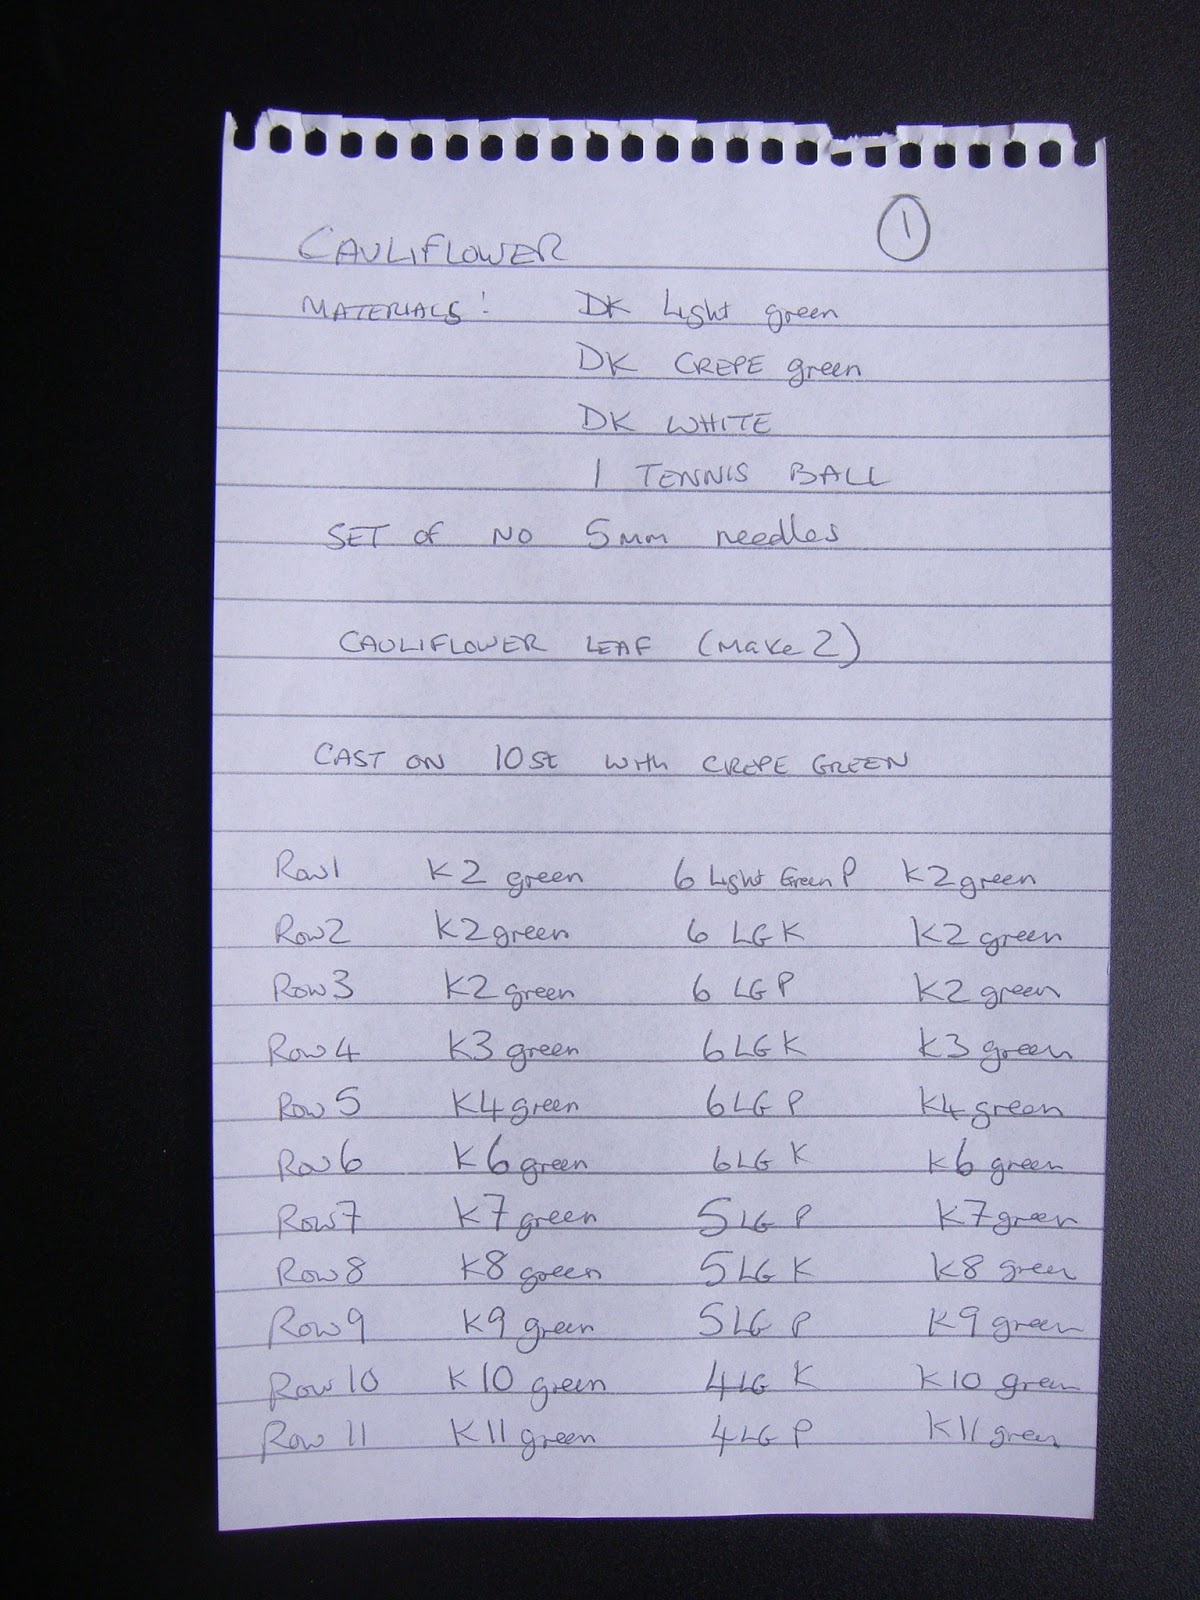 1
CAULIFLOWER
MATERIALS: DK Light green
DK CREPE green
DK WHITE
1 TENNIS BALL
SET OF NO 5mm needles
CAULIFLOWER LEAF (Make 2)
CAST ON 10st with CREPE GREEN
Row 1 K2 green 6 Light Green P K2 green
Row 2 K2 green 6 LG K K2 green
Row 3 K2 green 6 LG P K2 green
Row 4 K3 green 6 LG K K3 green
Row 5 K4 green 6 LG P K4 green
Row 6 K6 green 6 LG K K6 green
Row 7 K7 green 5 LG P K7 green
Row 8 K8 green 5 LG K K8 green
Row 9 K9 green 5 LG P K9 green
Row 10 K10 green 4 LG K K10 green
Row 11 K11 green 4 LG P K11 green